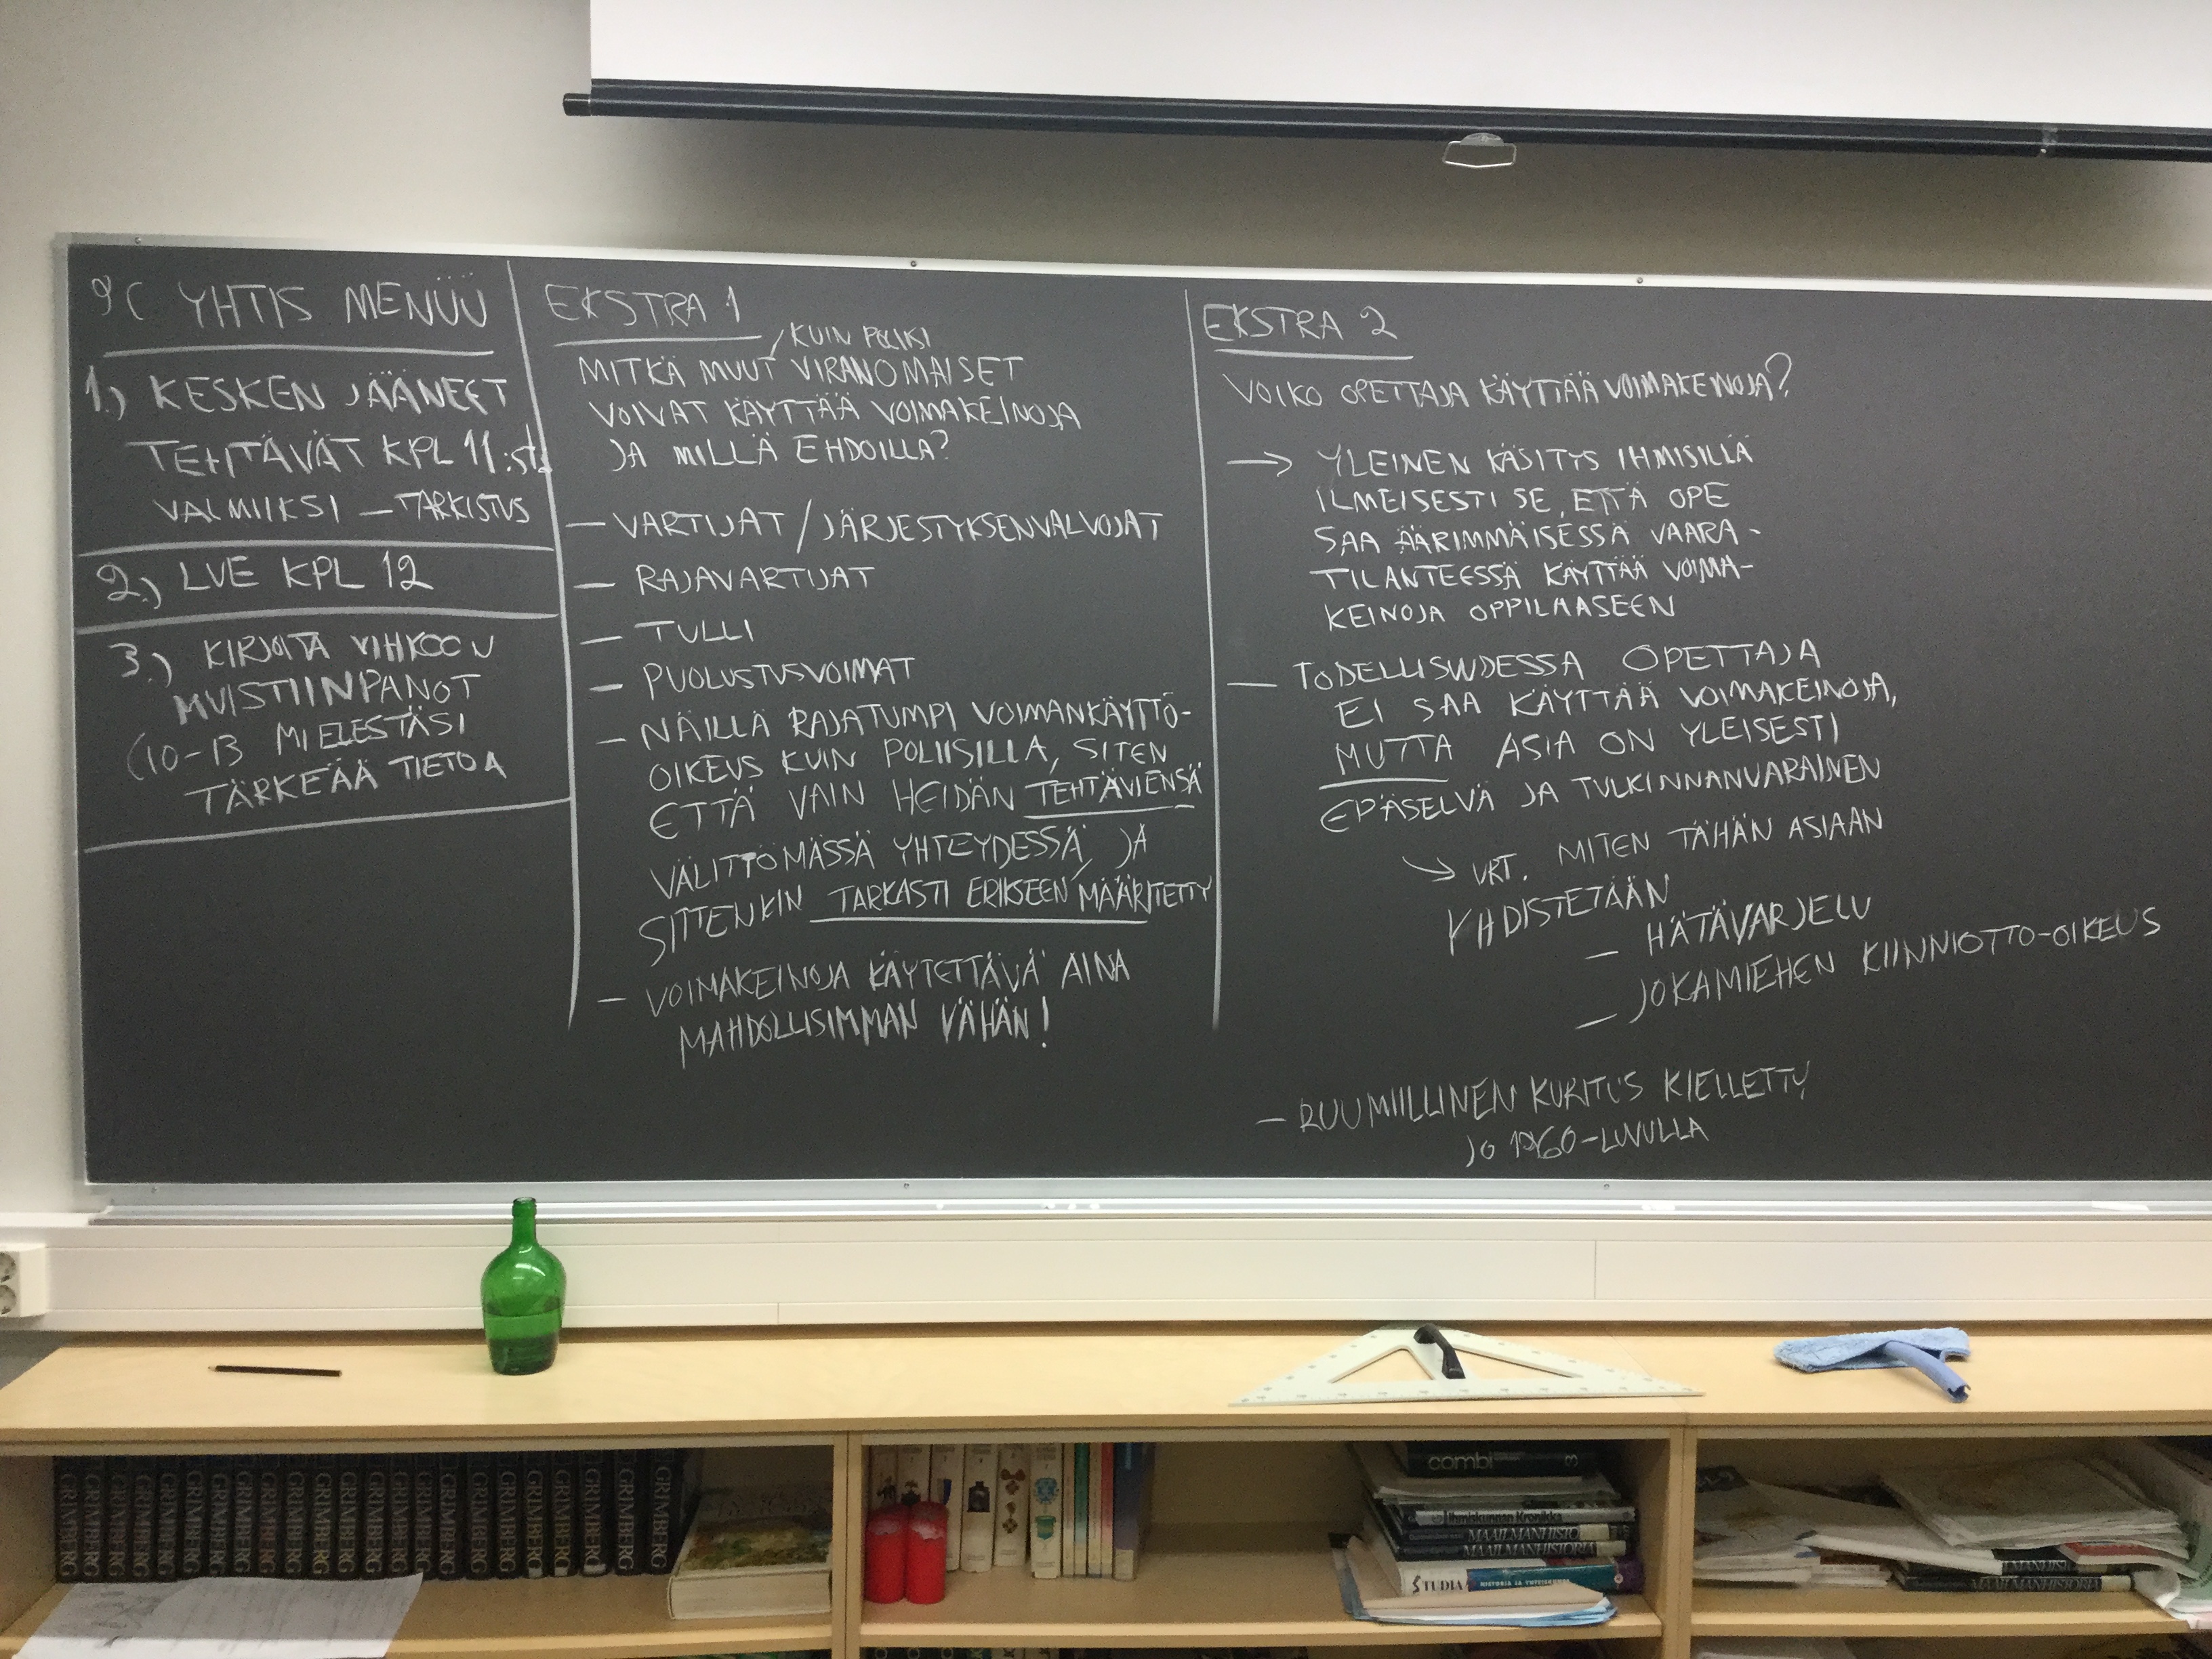 9C YHTIS MENÜÜ
1.) KESKEN JÄÄNEET
TEHTÄVÄT KPL 11:sta
VALMIIKSI – TARKISTUS
2.) LVE KPL 12
3.) KIRJOITA VIHKOON
MUISTIINPANOT
(10-13 MIELESTÄSI
TÄRKEÄÄ TIETOA
EKSTRA 1
KUIN POLIISI
MITKÄ MUUT VIRANOMAISET
VOIVAT KÄYTTÄÄ VOIMAKEINOJA
JA MILLÄ EHDOILLA?
– VARTIJAT / JÄRJESTYKSENVALVOJAT
– RAJAVARTIJAT
– TULLI
– PUOLUSTUSVOIMAT
– NÄILLÄ RAJATUMPI VOIMANKÄYTTÖ-
OIKEUS KUIN POLIISILLA, SITEN
ETTÄ VAIN HEIDÄN TEHTÄVIENSÄ
VÄLITTÖMÄSSÄ YHTEYDESSÄ, JA
SITTENKIN TARKASTI ERIKSEEN MÄÄRITETTY
– VOIMAKEINOJA KÄYTETTÄVÄ AINA
MAHDOLLISIMMAN VÄHÄN!
EKSTRA 2
VOIKO OPETTAJA KÄYTTÄÄ VOIMAKEINOJA?
→ YLEINEN KÄSITYS IHMISILLÄ
ILMEISESTI SE, ETTÄ OPE
SAA ÄÄRIMMÄISESSÄ VAARA-
TILANTEESSA KÄYTTÄÄ VOIMA-
KEINOJA OPPILAASEEN
– TODELLISUUDESSA OPETTAJA
EI SAA KÄYTTÄÄ VOIMAKEINOJA,
MUTTA ASIA ON YLEISESTI
EPÄSELVÄ JA TULKINNANVARAINEN
↘ VRT. MITEN TÄHÄN ASIAAN
YHDISTETÄÄN
– HÄTÄVARJELU
– JOKAMIEHEN KIINNIOTTO-OIKEUS
– RUUMIILLINEN KURITUS KIELLETTY
JO 1960-LUVULLA
GRIMBERG GRIMBERG GRIMBERG GRIMBERG GRIMBERG GRIMBERG GRIMBERG GRIMBERG GRIMBERG GRIMBERG GRIMBERG GRIMBERG GRIMBERG GRIMBERG GRIMBERG GRIMBERG GRIMBERG GRIMBERG GRIMBERG GRIMBERG GRIMBERG GRIMBERG
combi 3
Ihmiskunnan Kronikka
MAAILMANHISTO
MAAILMANHISTORIA
STUDIA HISTORIA JA
MAAILMANHISTORIA